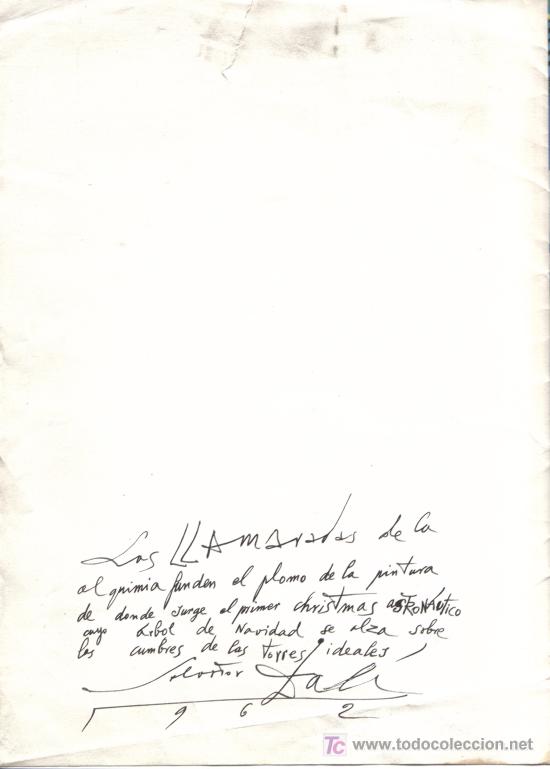 Las LLAMaradas de la
alquimia funden el plomo de la pintura
de donde surge el primer christmas astRONÁUTICO
cuyo árbol de Navidad se alza sobre
las cumbres de las torres ideales
Salvador Dalí
1962
TC www.todocoleccion.net